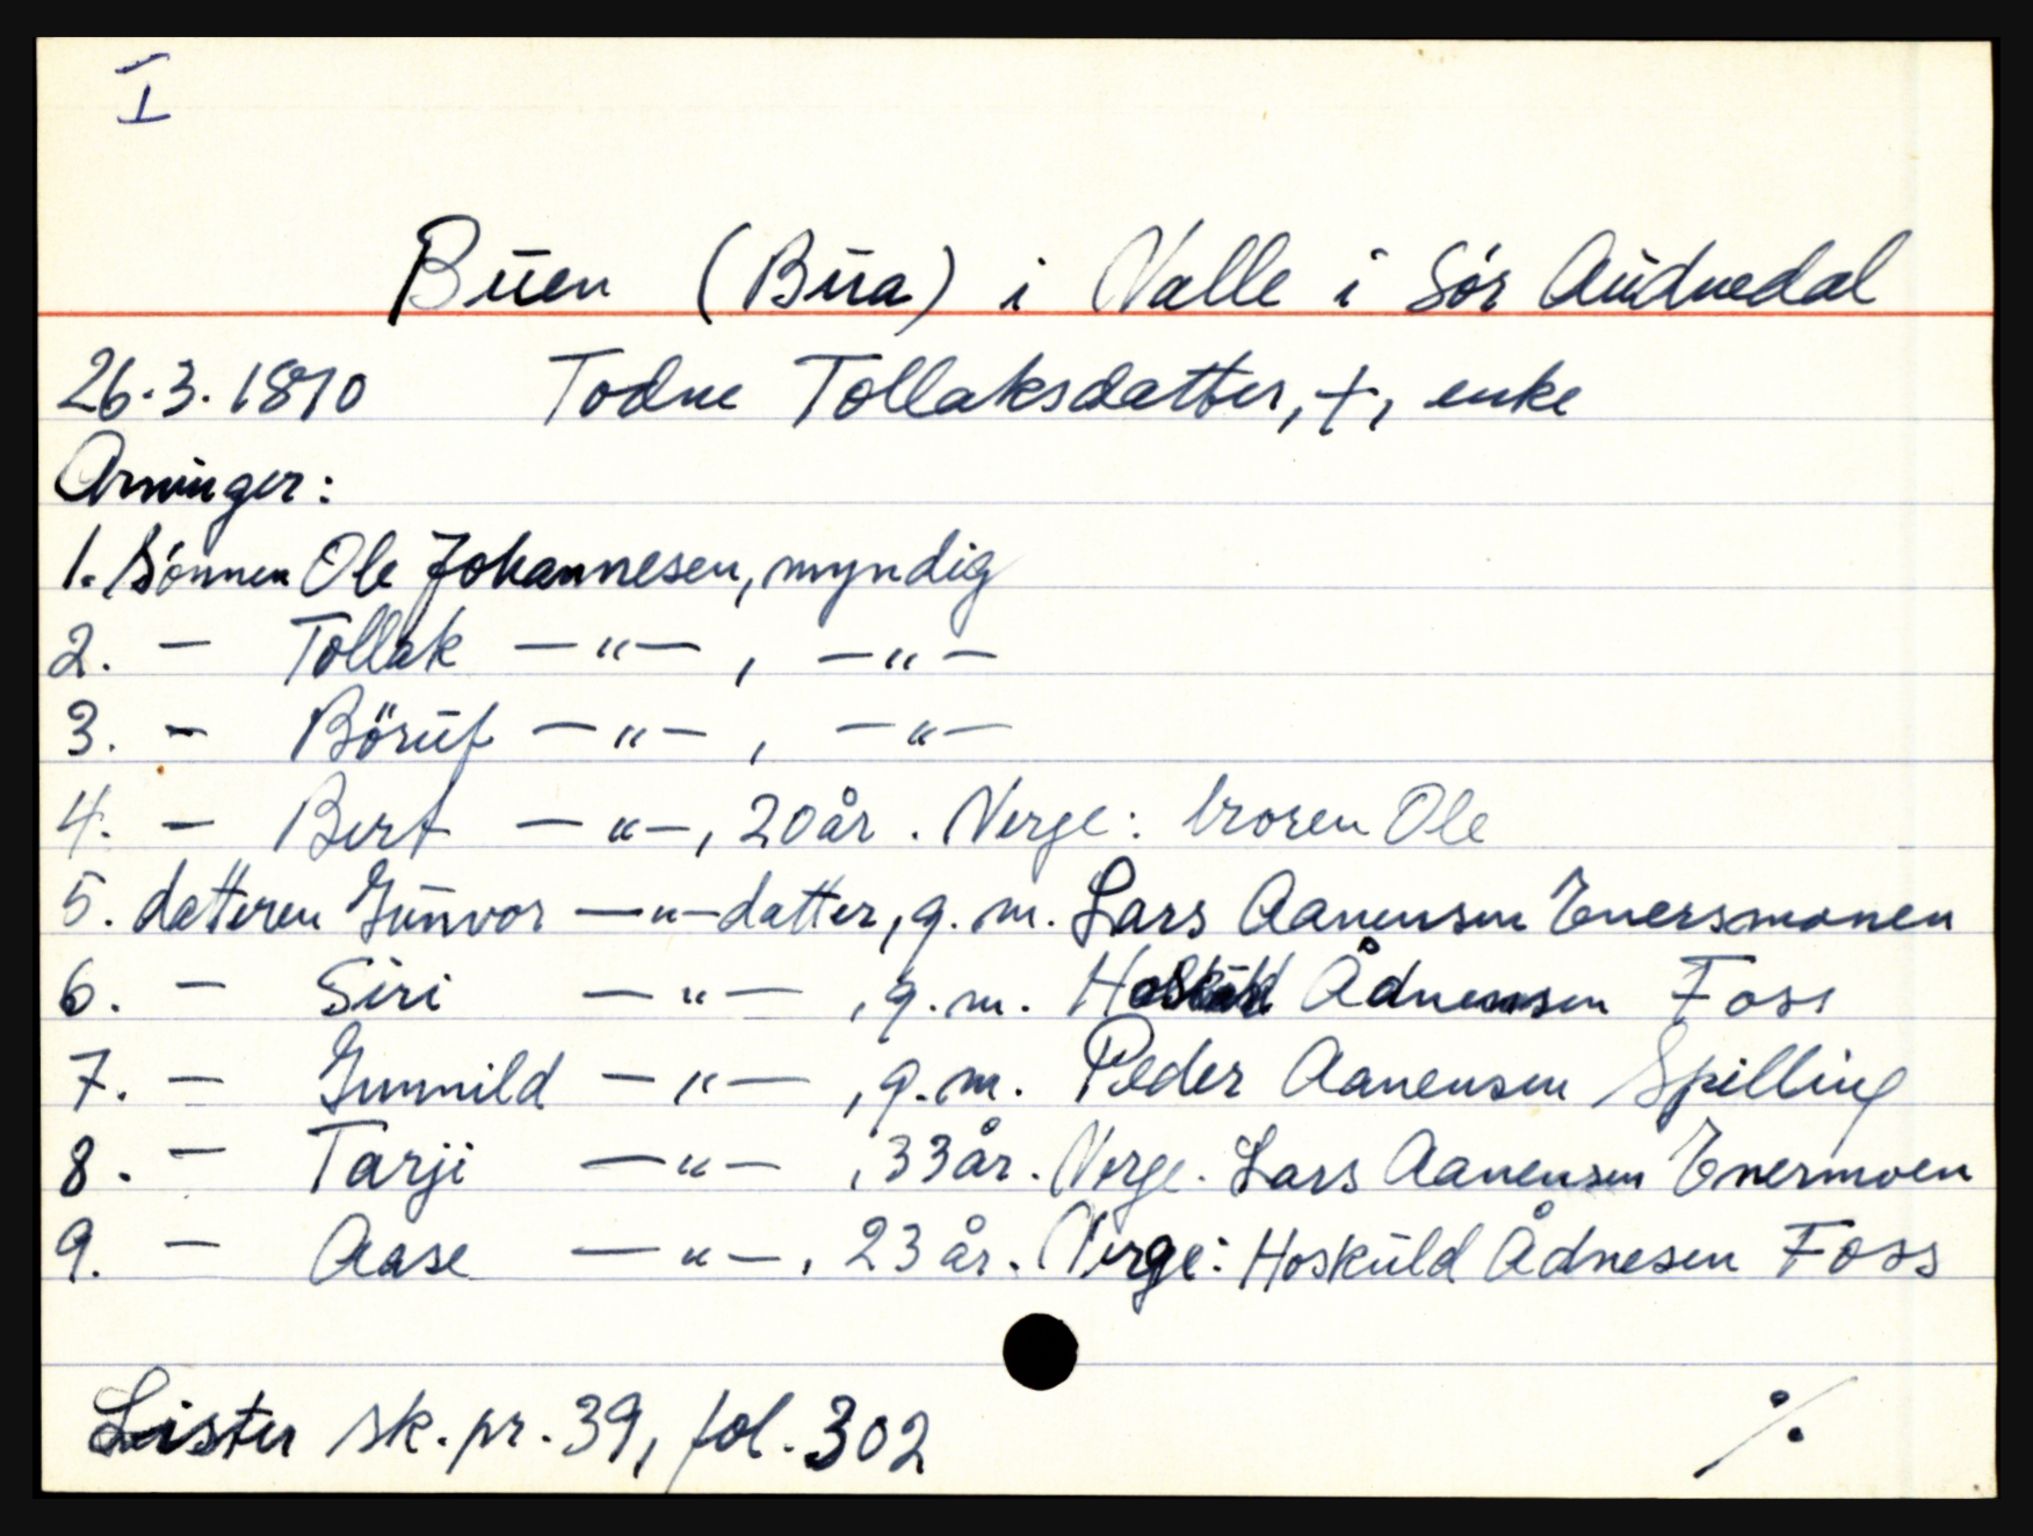 I
Buen (Bua) i Valle i Sör Audnedal
26.3.1810 Todne Tollaksdatter, +, enke
Arvinger:
1. Sönnen Ole Johannesen, myndig
2. — Tollak —"— , —"—
3. — Börüf —"— , —"—
4. — Bert —"—, 20 år. Verge: broren Ole
5. datteren Gunvor —"—datter, g. m. Lars Aanensen Enersmonen
6. — Siri —"— , g. m. Hoskuld Ådnensen Foss
7. — Gunnild —"— , g. m. Peder Aanensen Spilling
8. — Tarji —"— , 33 år. Verge. Lars Aanensen Enermoen
9. — Aase —"— , 23 år. Verge: Hoskuld Ådnesen Foss
Lister sk. pr. 39, fol. 302 ./.